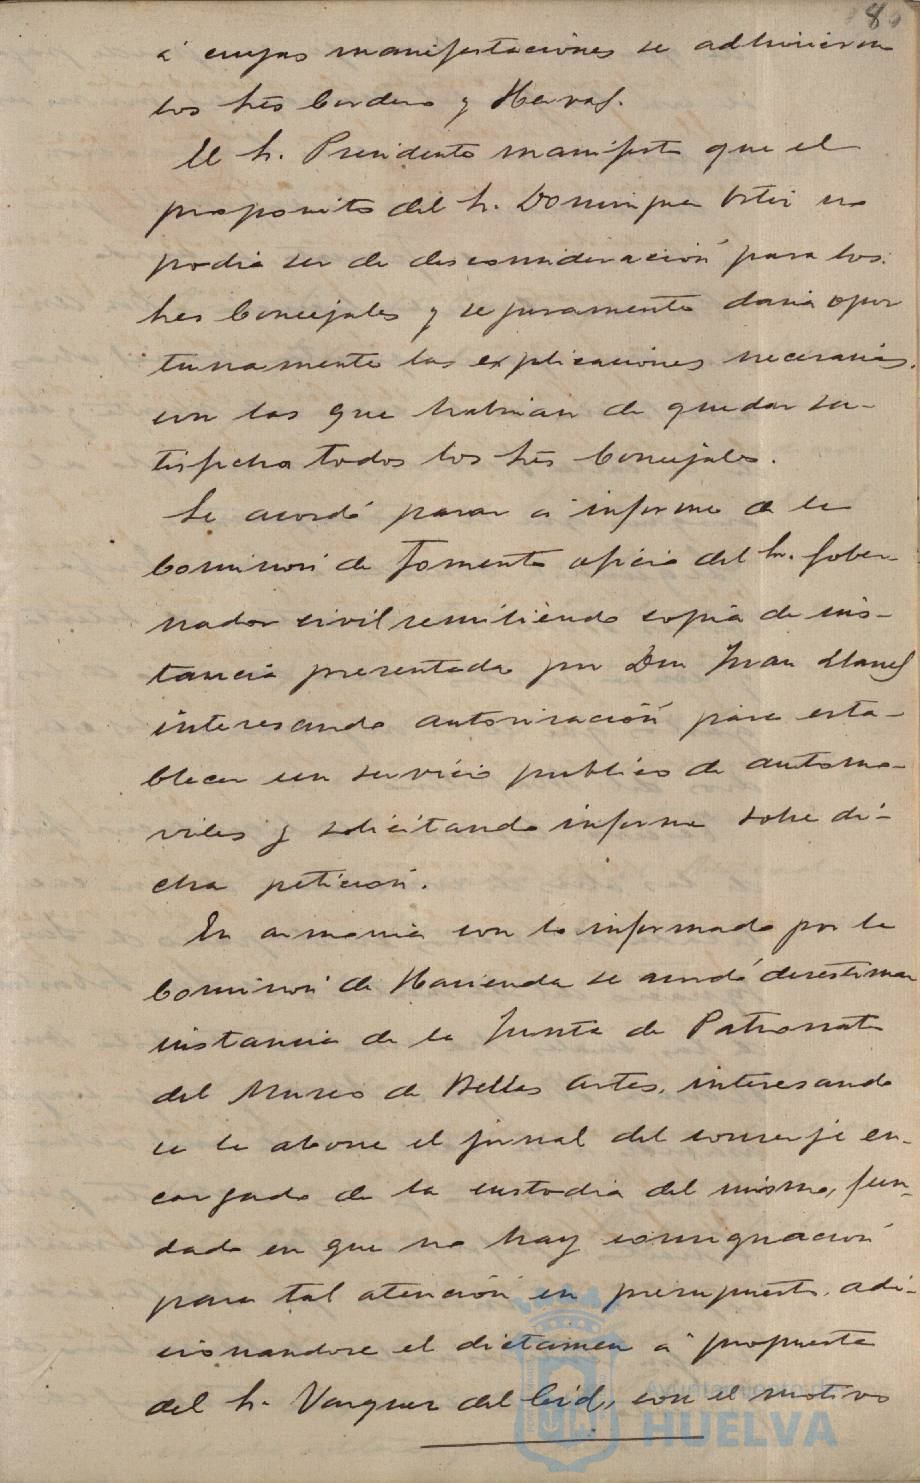 8
á cuyas manifestaciones se adhirieron
los Sres Cordero y Hervas.
El Sr. Presidente manifestó que el
proposito del Sr. Dominguez Ortiz no
podia ser de desconsideración para los
Sres Concejales y seguramente daria opor
tunamente las explicaciones necesarias,
con las que habrian de quedar sa-
tisfecho todos los Sres Concejales.
Se acordó pasar á informe de la
Comisión de Fomento oficio del Sr. Gober-
nador civil remitiendo copia de ins-
tancia presentada por Don Juan Llanes
interesando autorización para esta-
blecer un servicio publico de automo-
viles y solicitando informe sobre di-
cha petición.
En armonia con lo informado por la
Comisión de Hacienda se acordó desestimar
instancia de la Junta de Patronato
del Museo de Bellas Artes, interesando
se le abone el jornal del conserje en-
cargado de la custodia del mismo, fun-
dado en que no hay consignación
para tal atención en presupuesto, adi-
cionandose el dictamen á propuesta
del Sr. Vazquez del Cid, con el motivo
Ayuntamiento de
HUELVA